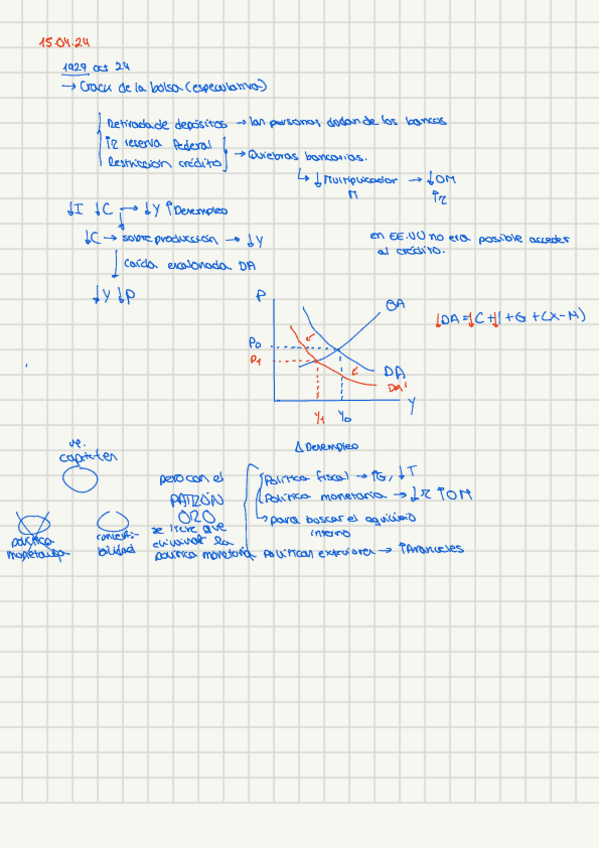 15.04.24
1929 oct 24
→ Crack de la bolsa (especulativa)
Retirada de depósitos → las personas dudan de los bancos
↑r reserva Federal
Restricción crédito → Quiebras bancarias.
↳ ↓Multiplicador → ↓OM
M ↑r
↓I ↓C → ↓Y ↑Desempleo
↓C → sobreproducción → ↓Y
en EE.UU no era posible acceder
al crédito.
caída escalonada DA
↓Y ↓P
P
OA
↓DA = ↓C + ↓I + G + (X-M)
P0
P1
DA
DA'
Y1 Y0
Y
Δ Desempleo
capitales
pero con el
PATRÓN
ORO
se tiene que
la
política monetaria
Política fiscal → ↑G, ↓T
Política monetaria → ↓r ↑OM
↳ para buscar el equilibrio
interno
Políticas exteriores → ↑Aranceles
política
monetaria
converti-
bilidad